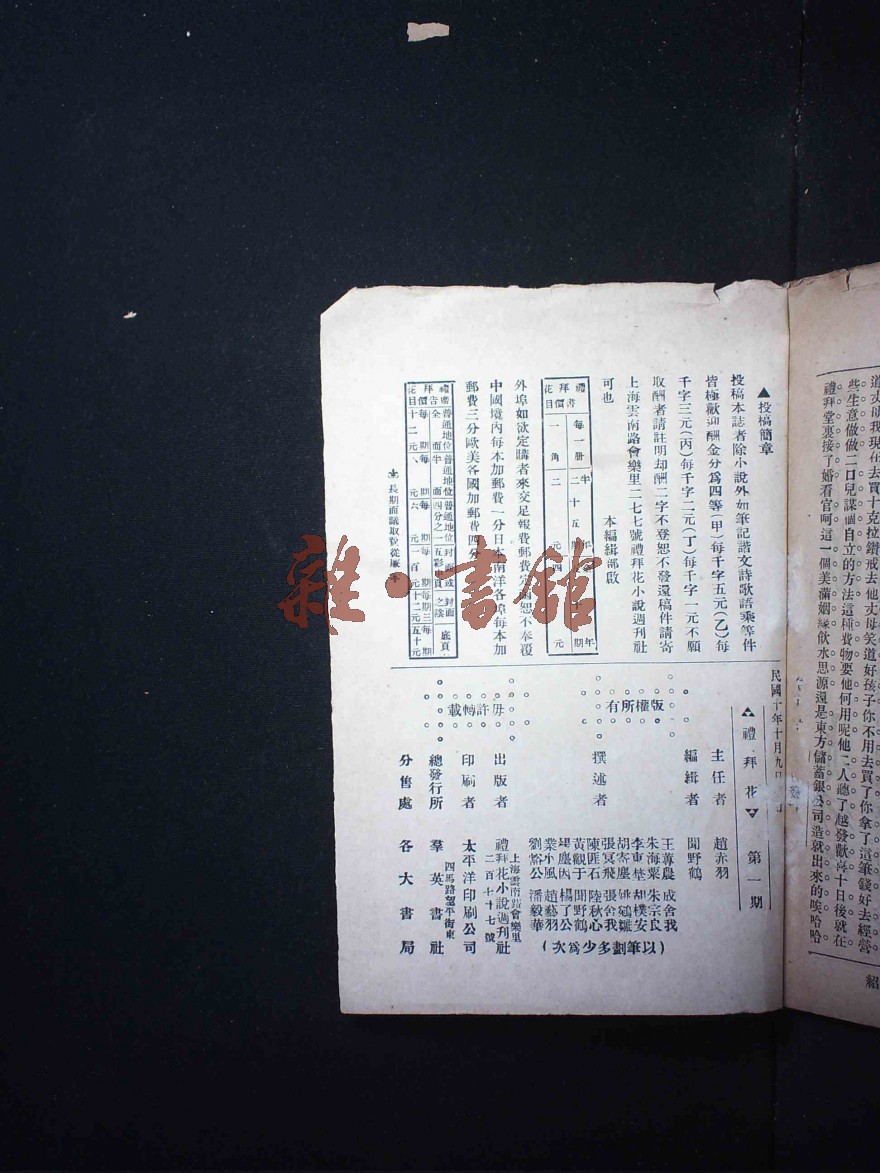 道丈母我現在去買十克拉鑽戒去他丈母笑道好孩子你不用去買了你拿了這筆錢好去經營
些生意做做二口兒謀個自立的方法這種費物要他何用呢他二人聽了越發歡喜十日後就在
禮拜堂裏接了婚看官呵這一個美滿姻緣飲水思源還是東方儲蓄銀公司造就出來的唉哈哈
紹
▲投稿簡章
投稿本誌者除小說外如筆記諧文詩歌語乘等件
皆極歡迎酬金分為四等(甲)每千字五元(乙)每
千字三元(丙)每千字二元(丁)每千字一元不願
取酬者請註明却酬二字不登恕不發還稿件請寄
上海雲南路會樂里二七七號禮拜花小說週刊社
可也
本編緝部啟
禮拜花書價目
每一册 一角
半年二十五期 二元
外埠如欲定購者來交足報費郵費定閱恕不奉覆
中國境內每本加郵費一分日本南洋各埠每本加
郵費三分歐美各國加郵費四分
禮拜花告價目
普通地位全面每期十二元
普通地位半面每期八元
普通地位四分之一每期六元
長期面議取費從廉
民國十年十月九日
禮拜花 第一期
主任者 趙赤羽
編緝者 聞野鶴
撰述者
王蓴農 成舍我
朱海粟 朱宗良
胡樸安
胡寄塵 姚鵷雛
張冥飛 張舍我
陳匪石 陸秋心
黃觀于 聞野鶴
楊了公
葉小風 趙藝羽
劉豁公 潘毅華
(以筆劃多少為次)
版權所有
毋許轉載
出版者 上海雲南路會樂里二百七十七號 禮拜花小說週刊社
印刷者 太平洋印刷公司
總發行所 四馬路望平街東 羣英書社
分售處 各大書局
雜·書館